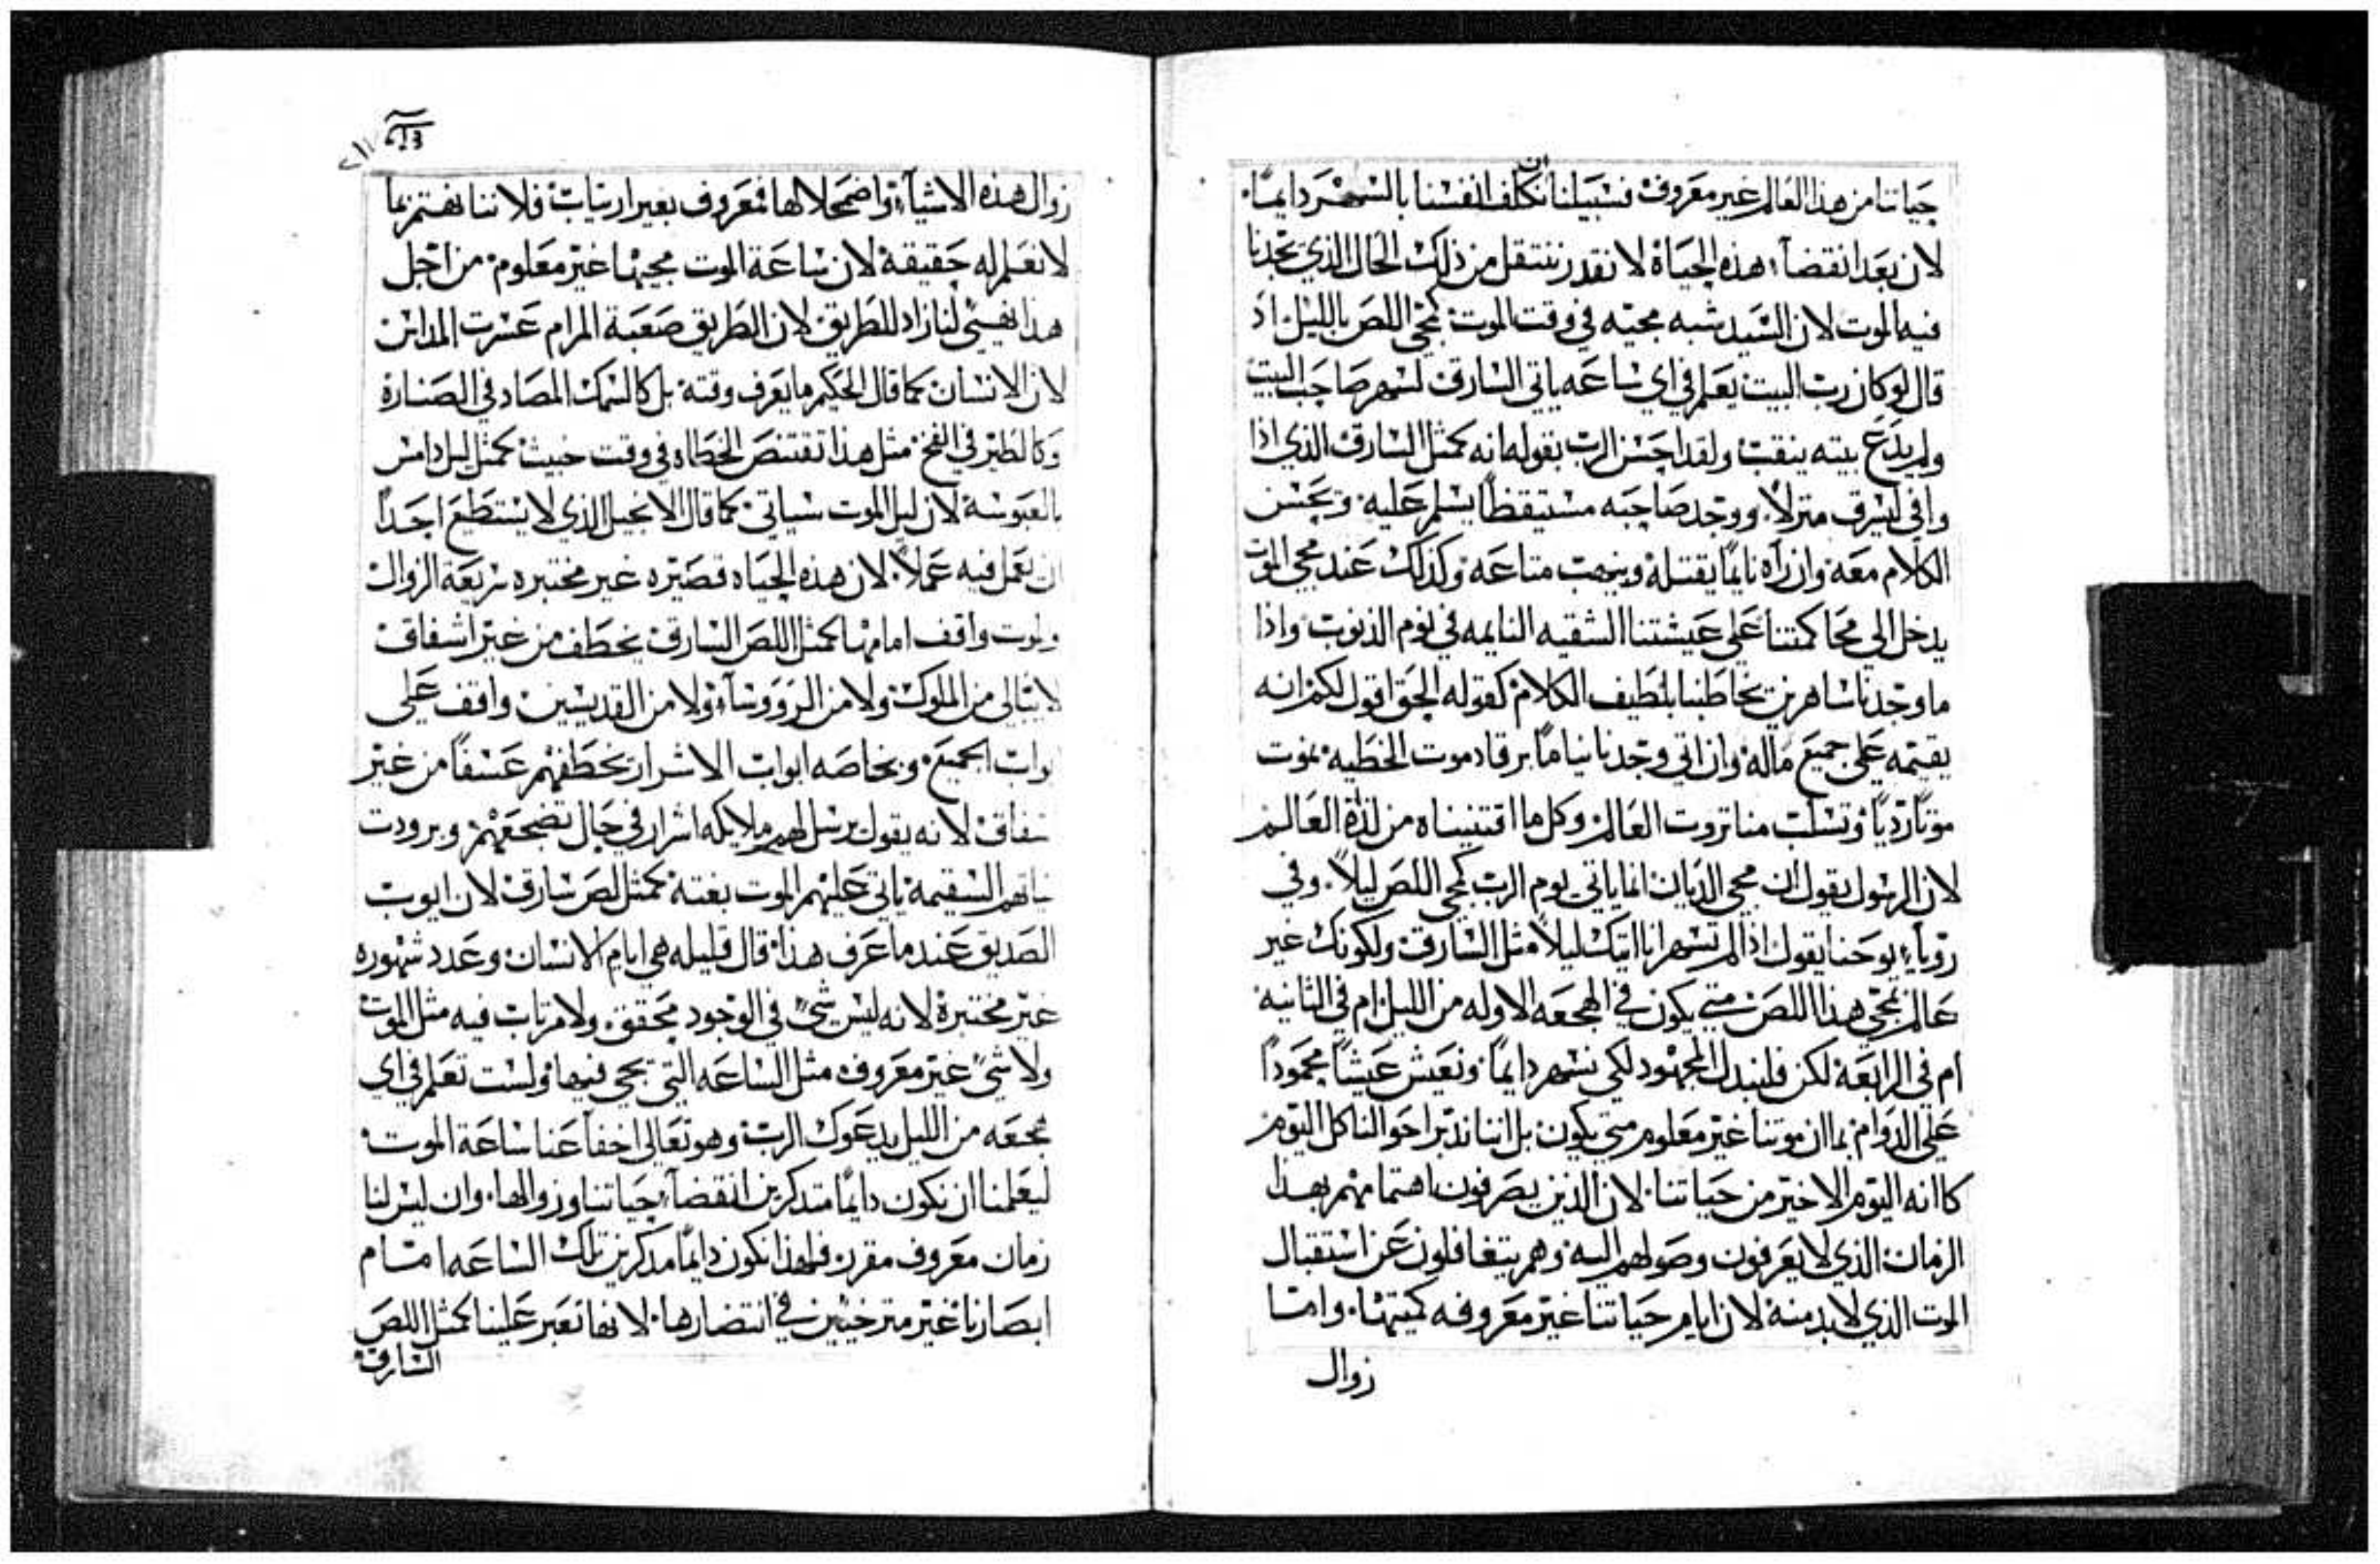 حياتنا من هذا العالم غير معروف فسبيلنا ان نكلف انفسنا بالسهر دايمًا.
لان بعد انقضآء هذه الحياة لا نقدر ننتقل من ذلك الحال الذي تجدنا
فيه الموت لان السيد شبه مجيه في وقت الموت كمجي اللص بالليل اذ
قال لو كان رب البيت يعلم في اي ساعه ياتي السارق لسهر صاحب البيت
ولم يدع بيته ينقب ولقد احسن الرب بقوله انه كمثل السارق الذي اذا
وافي ليسرق منزلاً. ووجد صاحبه مستيقظاً يسلم عليه ويحسن
الكلام معه وان رآه نايماً يقتله وينهب متاعه وكذلك عند مجي الموت
يدخل الي محاكمتنا علي عيشتنا الشقيه النايمه في نوم الذنوب واذا
ما وجدنا ساهرين يخاطبنا بلطيف الكلام كقوله الحق اقول لكم انه
يقيمه علي جميع ماله وان اتي وجدنا نياماً برقاد موت الخطيه نموت
موتاً رديًا وتسلب منا ثروت العالم وكل ما اقتنيناه من لذة العالم
لان الرسول يقول ان مجي الديان انما ياتي يوم الرب كمجي اللص ليلاً. وفي
روياء يوحنا يقول اذا لم تسهر انا اتيك ليلاً مثل السارق ولكونك غير
عالم بمجي هذا اللص متي يكون في الهجعه الاوله من الليل ام في الثانيه
ام في الرابعة لكن فلنبدل المجهود لكي نسهر دايماً ونعيش عيشاً محموداً
علي الدوام بما ان موتنا غير معلوم متي يكون بل اننا ندبر احوالنا كل اليوم
كاانه اليوم الاخير من حياتنا لان الذين يصرفون اهتمامهم بهذا
الزمان الذي لا يعرفون وصولهم اليه وهم يتغافلون عن استقبال
الموت الذي لا بد منه لان ايام حياتنا غير معروفه كميتها. واما
زوال
٢١١
زوال هذه الاشيآء واضمحلالها فمعروف بغير ارتياب فلاننا نهتم بما
لا نعلم له حقيقة لان ساعة الموت مجيها غير معلوم من اجل
هذا نهيي لنا زاد للطريق لان الطريق صعبة المرام عسرت المداين
لان الانسان كما قال الحكيم ما يعرف وقته بل كالسمك المصاد في الصنارة
وكالطير في الفخ مثل هذا تقتنص الخطاه في وقت خبيث كمثل ليل دامس
بالعبوسة لان ليل الموت سياتي كما قال الانجيل الذي لا يستطع احداً
ان يعمل فيه عملاً. لان هذه الحياه قصيره غير مختبره سريعة الزوال
والموت واقف امامها كمثل اللص السارق يخطف من غير اشفاق
لا يبالي من الملوك ولا من الرووسآء ولا من القديسين واقف علي
ابواب الجميع وبخاصه ابواب الاشرار يخطفهم عسفاً من غير
اشفاق لانه يقول يرسل لهم ملايكه اشرار في حال تضجعهم وبرودت
نياتهم السقيمة ياتي عليهم الموت بغتة كمثل لص سارق لان ايوب
الصديق عندما عرف هذا قال قليله هي ايام الانسان وعدد شهوره
غير مختبرة لانه ليس شيً في الوجود محقق ولا مرتاب فيه مثل الموت
ولا شيً غير معروف مثل الساعه التي يجي فيها ولست تعلم في اي
هجعه من الليل يدعوك الرب وهو تعالي اخفا عنا ساعة الموت
ليعلمنا ان نكون دايماً متدكرين انقضآء حياتنا وزوالها. وان ليس لنا
زمان معروف مقرن فلهذا نكون دايماً مدكرين تلك الساعه امام
ابصارنا غير مترخيين في انتضارها. لانها تعبر علينا كمثل اللص
السارق